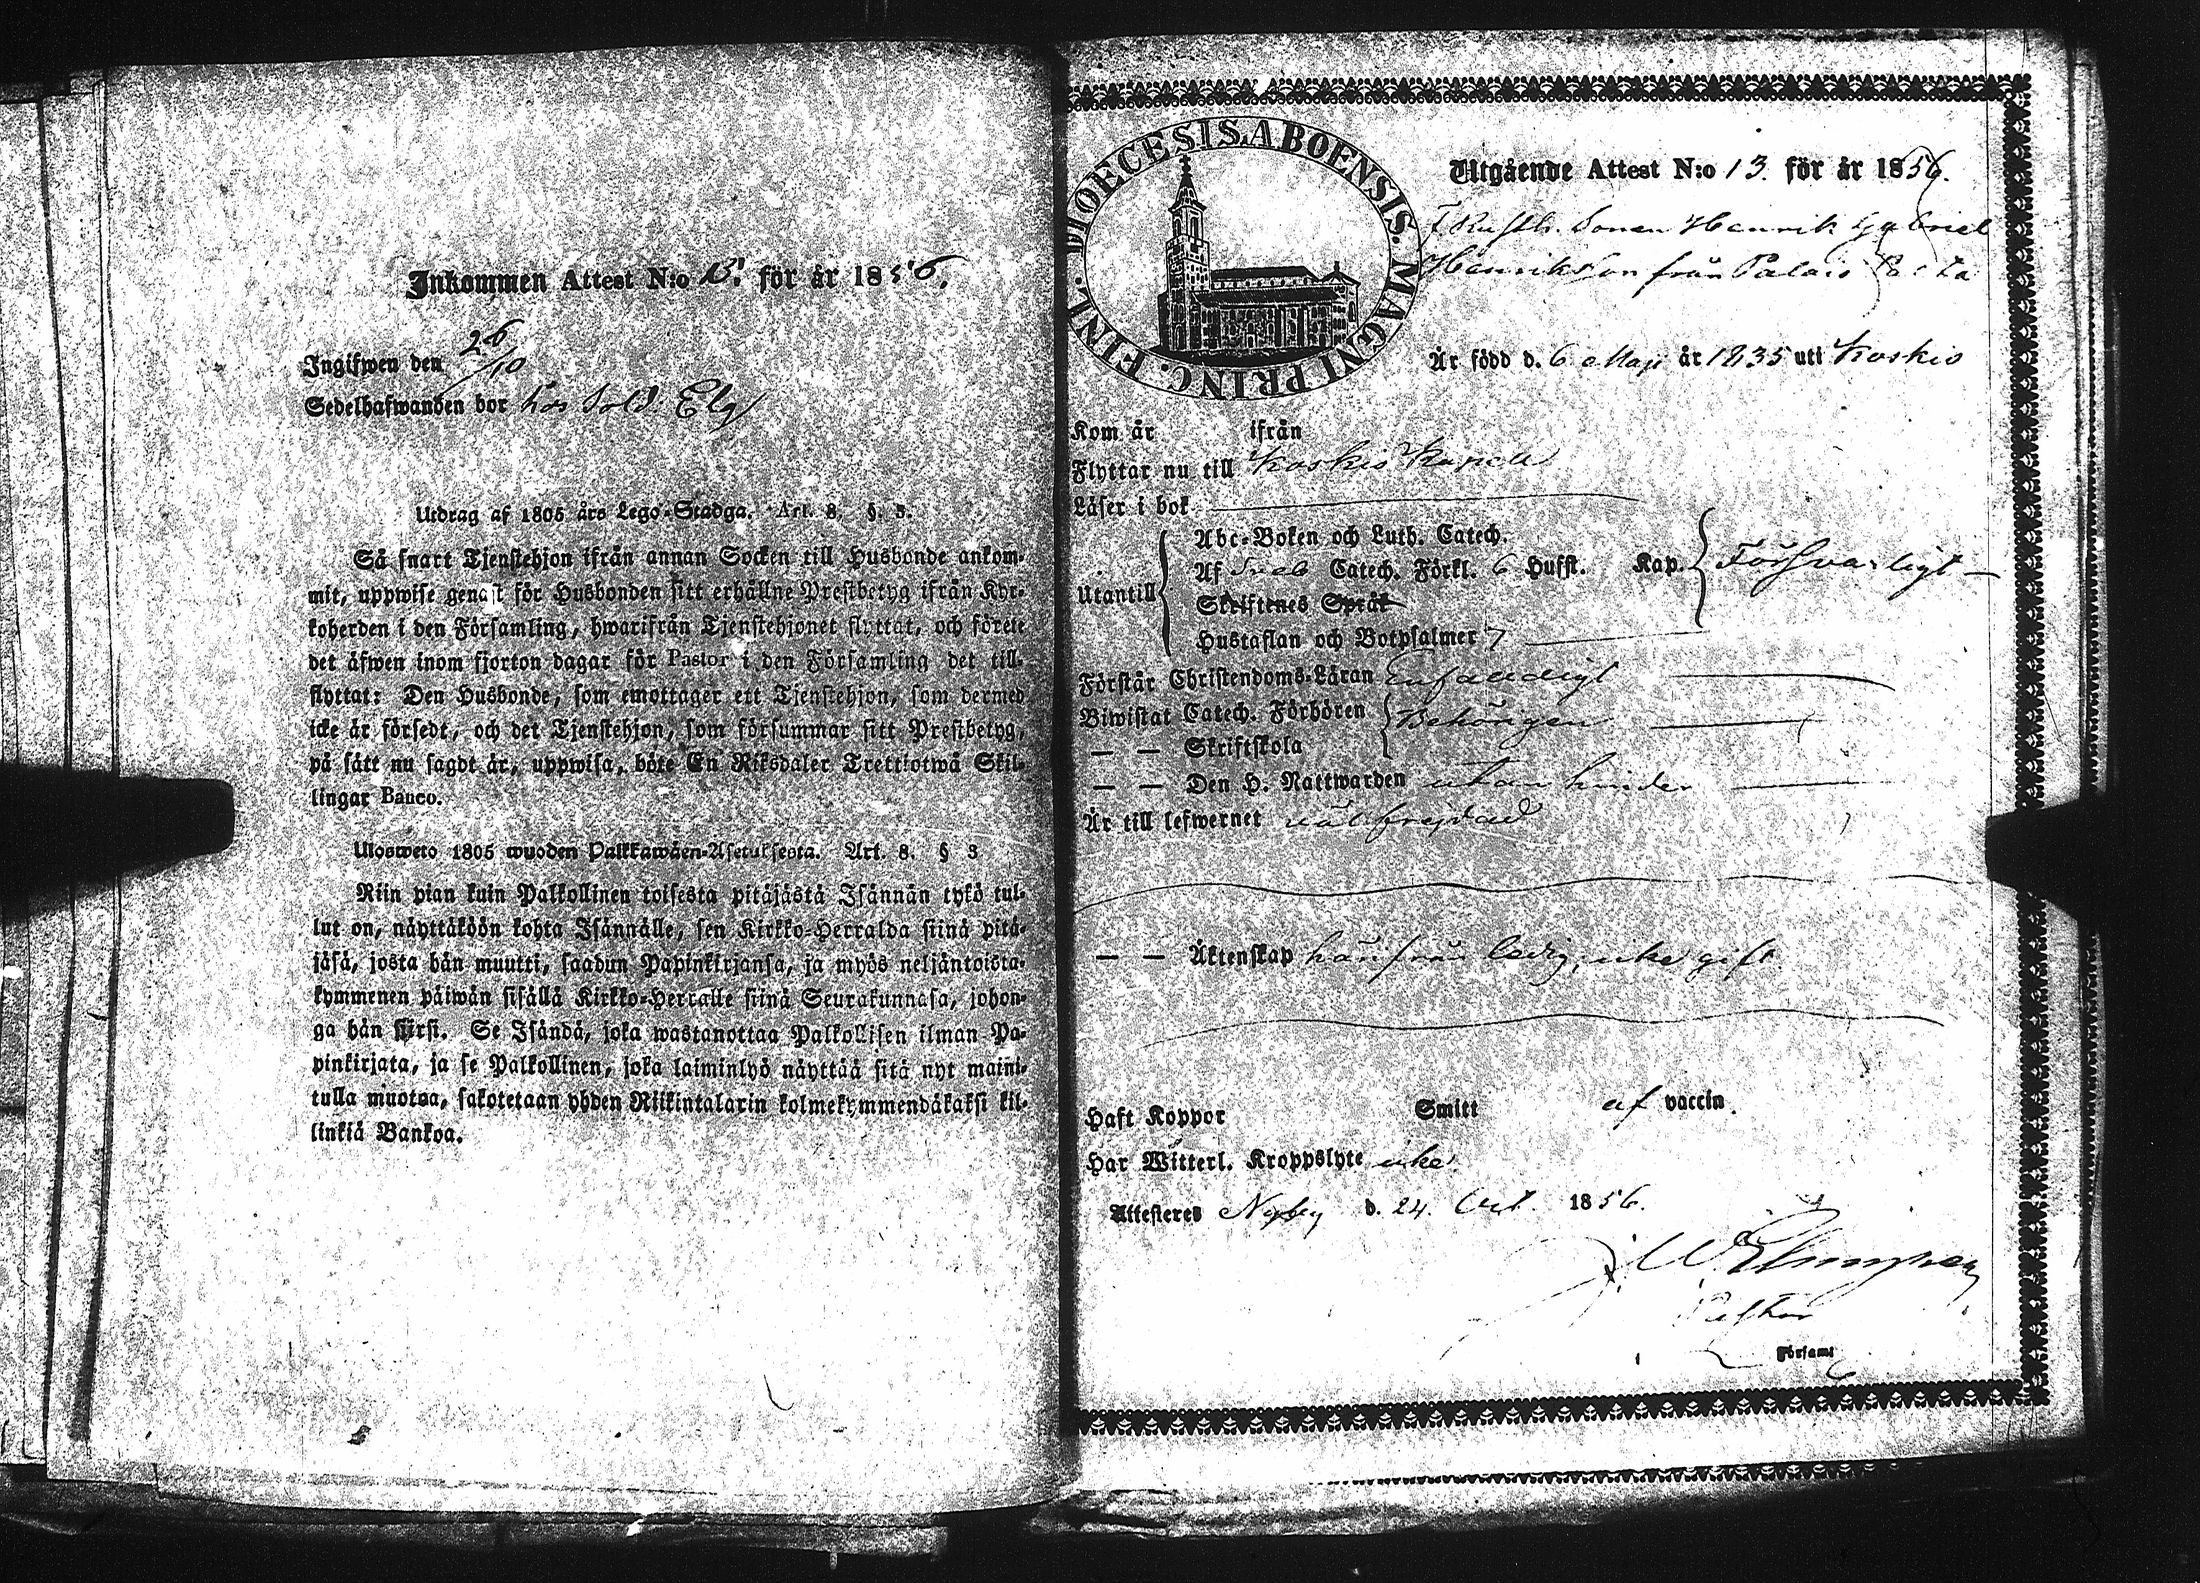 Inkommen Attest N:o 13. för år 1856.
Ingifwen den 26/10
Sedelhafwanden bor hos Sold: Elg
Utdrag af 1805 års Lego-Stadga. Art. 8. §. 3.
Så snart Tjenstehjon ifrån annan Socken till Husbonde ankom-
mit, uppwise genast för Husbonden sitt erhållne Prestbetyg ifrån Kyr-
koherden i den Församling, hwarifrån Tjenstehjonet flyttat, och förete
det äfwen inom fjorton dagar för Pastor i den Församling det till-
flyttat: Den Husbonde, som emottager ett Tjenstehjon, som dermed
icke är försedt, och det Tjenstehjon, som försummar sitt Prestbetyg,
på sätt nu sagdt är, uppwisa, böte En Riksdaler Trettiotwå Skil-
lingar Banco.
Ulosweto 1805 wuoden Palkkawäen-Asetuksesta. Art. 8. § 3
Niin pian kuin Palkollinen toisesta pitäjästä Isännän tykö tul-
lut on, näyttäköön kohta Isännälle, sen Kirkko-Herralda siinä pitä-
jäsä, josta hän muutti, saadun Papinkirjansa, ja myös neljäntoista-
kymmenen päiwän sisällä Kirkko-Herralle siinä Seurakunnasa, johon-
ga hän siirsi. Se Isändä, joka wastanottaa Palkollisen ilman Pa-
pinkirjata, ja se Palkollinen, joka laiminlyö näyttää sitä nyt maini-
tulla muotoa, sakotetaan yhden Riikintalarin kolmekymmendäkaksi kil-
linkiä Bankoa.
DIOECESIS ABOENSIS. MAGNI PRINC. FINL.
Utgående Attest N:o 13. för år 1856.
Sonen Henrik Gabriel
Henriksson från Palais
Är född d. 6 Maji år 1835 uti Koskis
Kom år ifrån
Flyttar nu till Koskis Kapell
Läser i bok
Abc-Boken och Luth. Catech.
Utantill Af Sveb Catech. Förkl. 6 Hufst. Kap. Försvarligt
Skriftenes Språk
Hustaflan och Botpsalmer 7
Förstår Christendoms-Läran Enfaldigt
Biwistat Catech. Förhören Behörigen
— — Skriftskola
— — Den H. Nattwarden utan hinder
Är till lefwernet välfrejdad
— — Äktenskap härifrån ledig, icke gift
Haft Koppor Smitt af vaccin.
Har Witterl. Kroppslyte icke
Attesteres Nyby d. 24. Oct. 1856.
Pastor
Församl